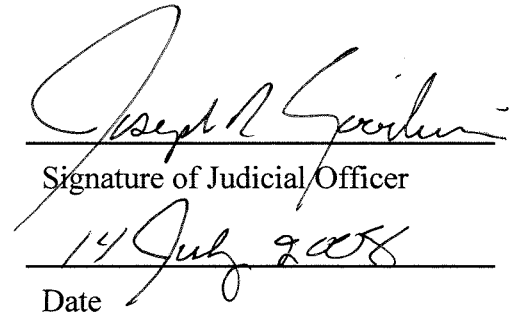 Joseph R Goodwin
Signature of Judicial Officer
14 July 2008
Date